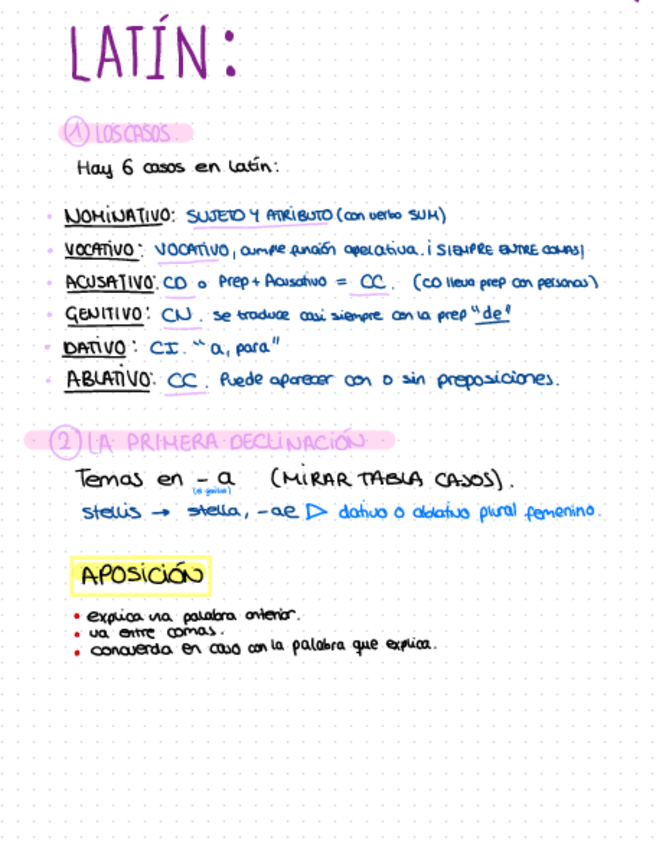 LATÍN:
① LOS CASOS.
Hay 6 casos en latín:
NOMINATIVO: SUJETO Y ATRIBUTO (con verbo SUM)
VOCATIVO: VOCATIVO, cumple función apelativa. ¡SIEMPRE ENTRE COMAS!
ACUSATIVO: CD o Prep + Acusativo = CC. (CD lleva prep con personas)
GENITIVO: CN. se traduce casi siempre con la prep "de"
DATIVO: CI. "a, para"
ABLATIVO: CC. Puede aparecer con o sin preposiciones.
② LA PRIMERA DECLINACIÓN
Temas en -a (MIRAR TABLA CASOS).
stellis → stella, -ae ▷ dativo o ablativo plural femenino.
APOSICIÓN
• explica una palabra anterior.
• va entre comas.
• concuerda en caso con la palabra que explica.